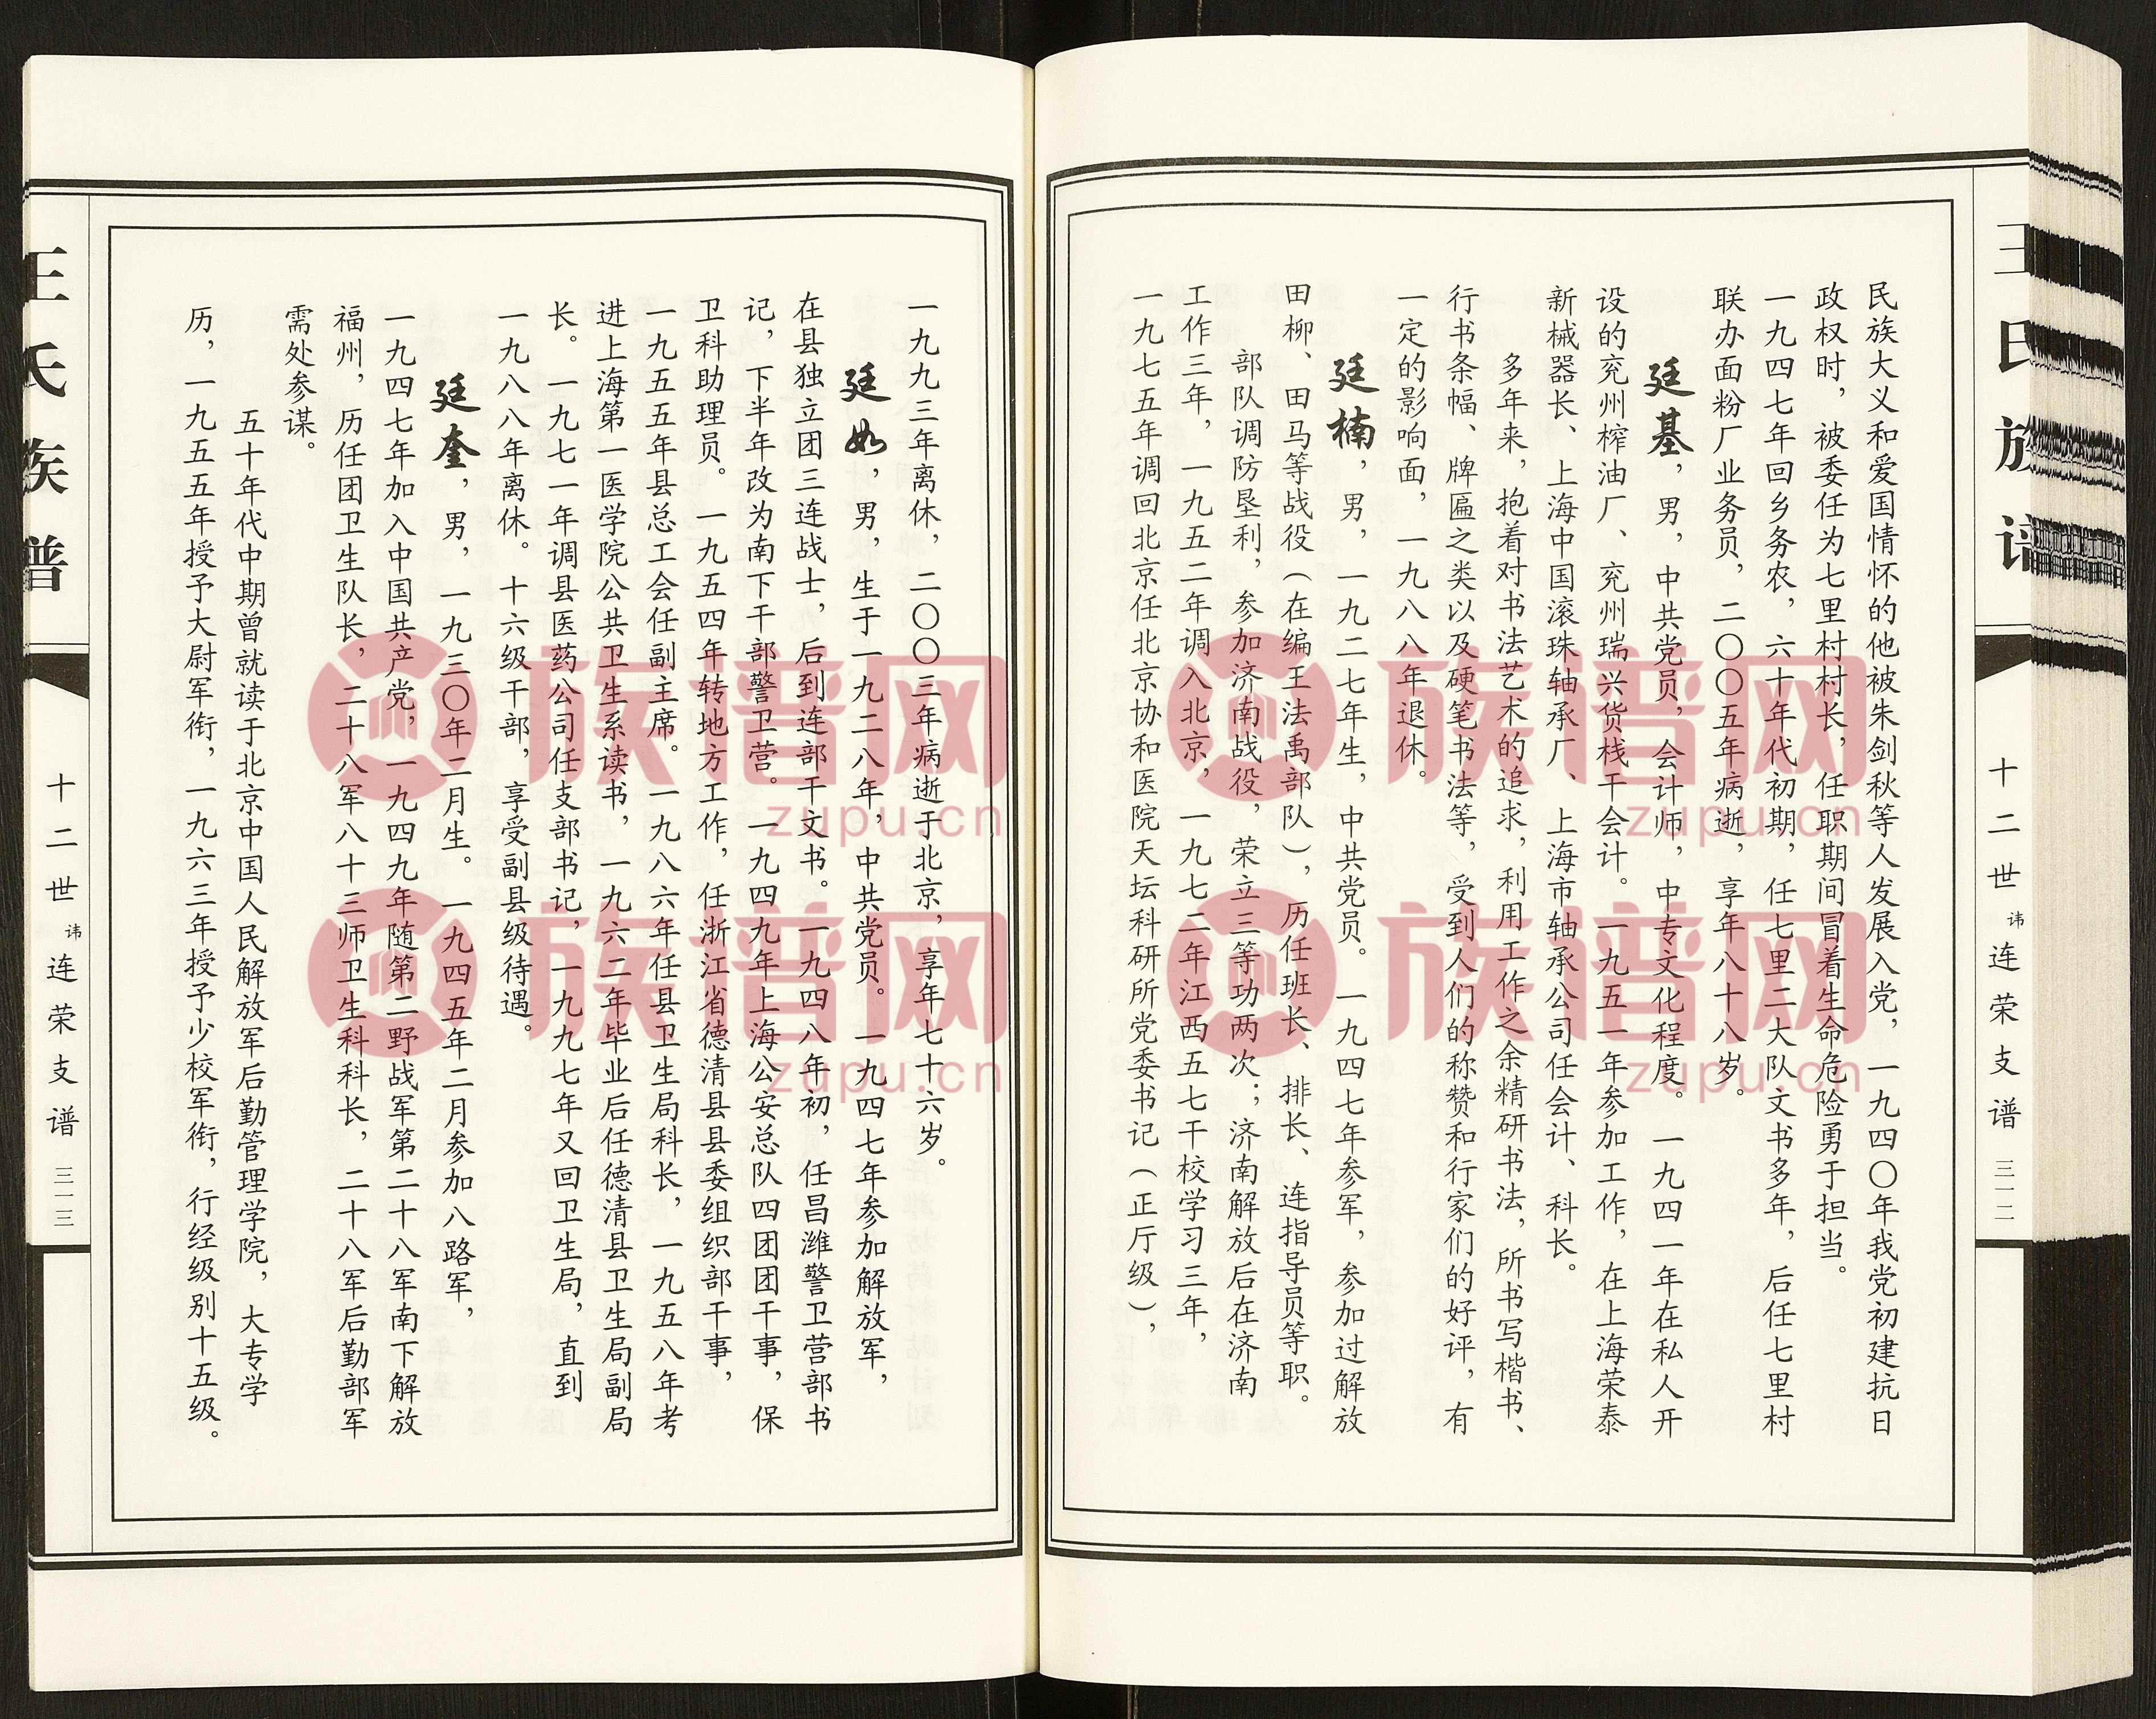 王氏族谱
十二世讳连荣支谱
三一二
民族大义和爱国情怀的他被朱剑秋等人发展入党，一九四〇年我党初建抗日
政权时，被委任为七里村村长，任职期间冒着生命危险勇于担当。
一九四七年回乡务农，六十年代初期，任七里二大队文书多年，后任七里村
联办面粉厂业务员，二〇〇五年病逝，享年八十八岁。
廷基，男，中共党员，会计师，中专文化程度。一九四一年在私人开
设的兖州榨油厂、兖州瑞兴货栈干会计。一九五一年参加工作，在上海荣泰
新械器长、上海中国滚珠轴承厂、上海市轴承公司任会计、科长。
多年来，抱着对书法艺术的追求，利用工作之余精研书法，所书写楷书、
行书条幅、牌匾之类以及硬笔书法等，受到人们的称赞和行家们的好评，有
一定的影响面，一九八八年退休。
廷楠，男，一九二七年生，中共党员。一九四七年参军，参加过解放
田柳、田马等战役（在编王法禹部队），历任班长、排长、连指导员等职。
部队调防垦利，参加济南战役，荣立三等功两次；济南解放后在济南
工作三年，一九五二年调入北京，一九七二年江西五七干校学习三年，
一九七五年调回北京任北京协和医院天坛科研所党委书记（正厅级），
一九九三年离休，二〇〇三年病逝于北京，享年七十六岁。
廷如，男，生于一九二八年，中共党员。一九四七年参加解放军，
在县独立团三连战士，后到连部干文书。一九四八年初，任昌潍警卫营部书
记，下半年改为南下干部警卫营。一九四九年上海公安总队四团团干事，保
卫科助理员。一九五四年转地方工作，任浙江省德清县县委组织部干事，
一九五五年县总工会任副主席。一九八六年任县卫生局科长，一九五八年考
进上海第一医学院公共卫生系读书，一九六二年毕业后任德清县卫生局副局
长。一九七一年调县医药公司任支部书记，一九九七年又回卫生局，直到
一九八八年离休。十六级干部，享受副县级待遇。
廷奎，男，一九三〇年二月生。一九四五年二月参加八路军，
一九四七年加入中国共产党，一九四九年随第二野战军第二十八军南下解放
福州，历任团卫生队长，二十八军八十三师卫生科科长，二十八军后勤部军
需处参谋。
五十年代中期曾就读于北京中国人民解放军后勤管理学院，大专学
历，一九五五年授予大尉军衔，一九六三年授予少校军衔，行经级别十五级。
王氏族谱
十二世讳连荣支谱
三一三
族谱网
zupu.cn
族谱网
zupu.cn
族谱网
zupu.cn
族谱网
zupu.cn